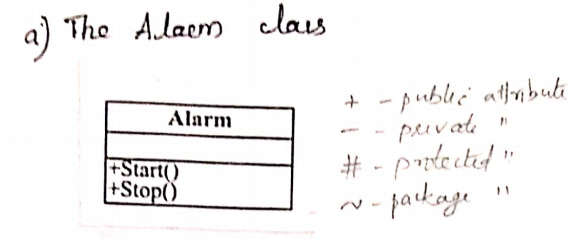 a) The Alarm class
Alarm
+Start()
+Stop()
+ - public attribute
- - private "
# - protected "
~ - package "